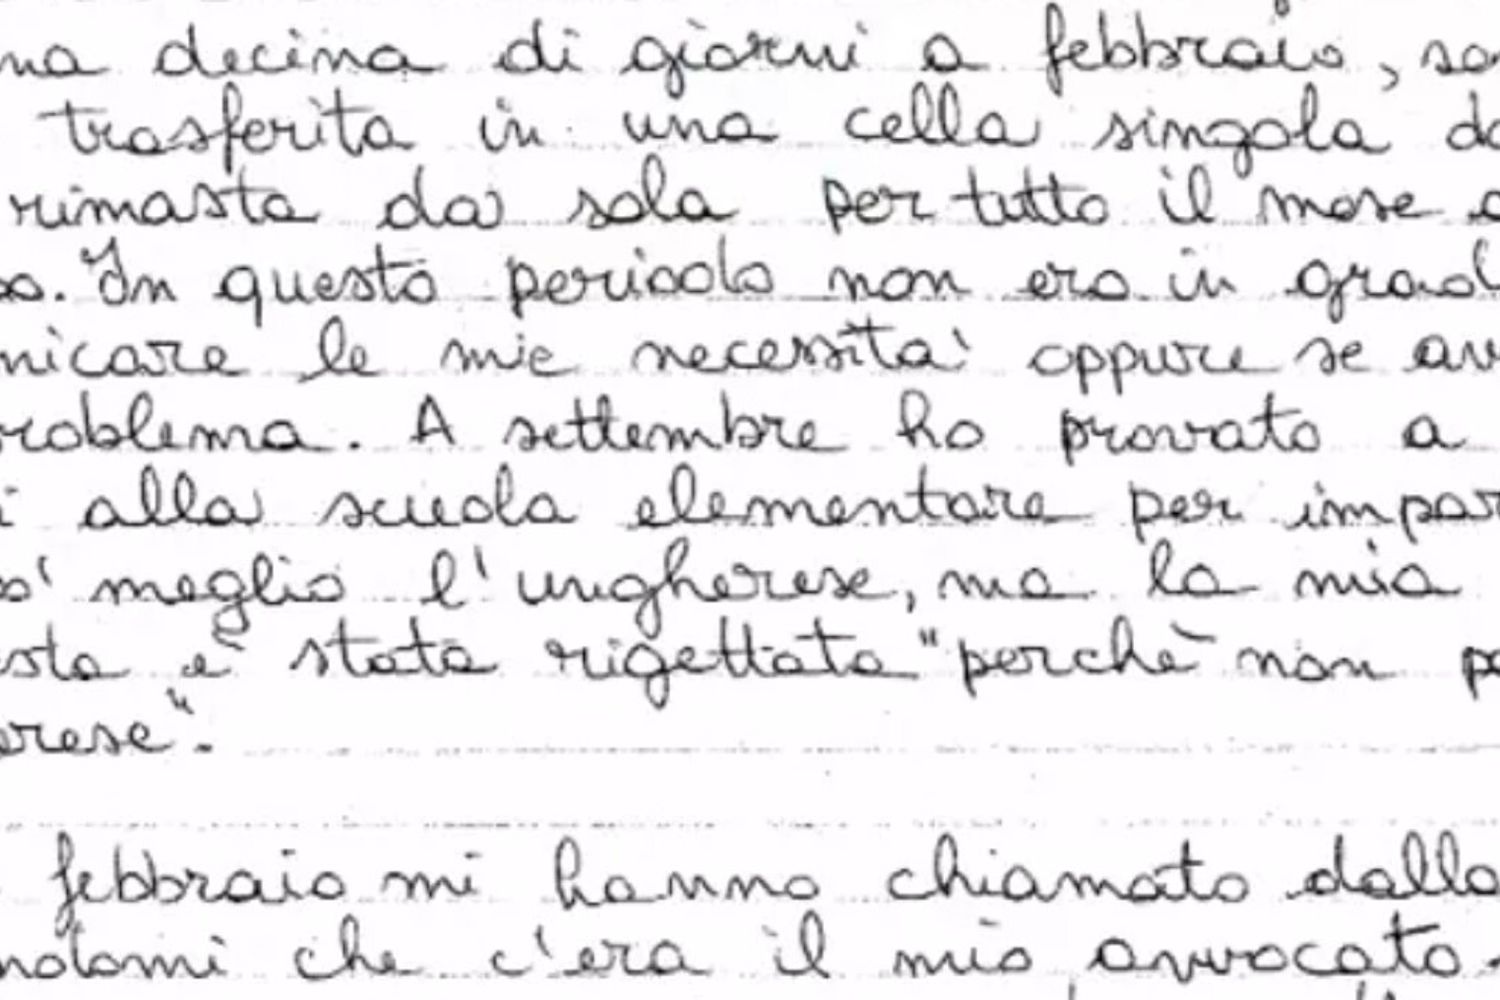 na decina di giorni a febbraio, so
trasferita in una cella singola do
rimasta da sola per tutto il mese
o. In questo periodo non ero in grad
nicare le mie necessita' oppure se av
roblema. A settembre ho provato a
i alla scuola elementare per impar
o' meglio l'ungherese, ma la mia
esta è stata rigettata "perchè non po
erese".
febbraio mi hanno chiamato dalla
ndomi che c'era il mio avvocato